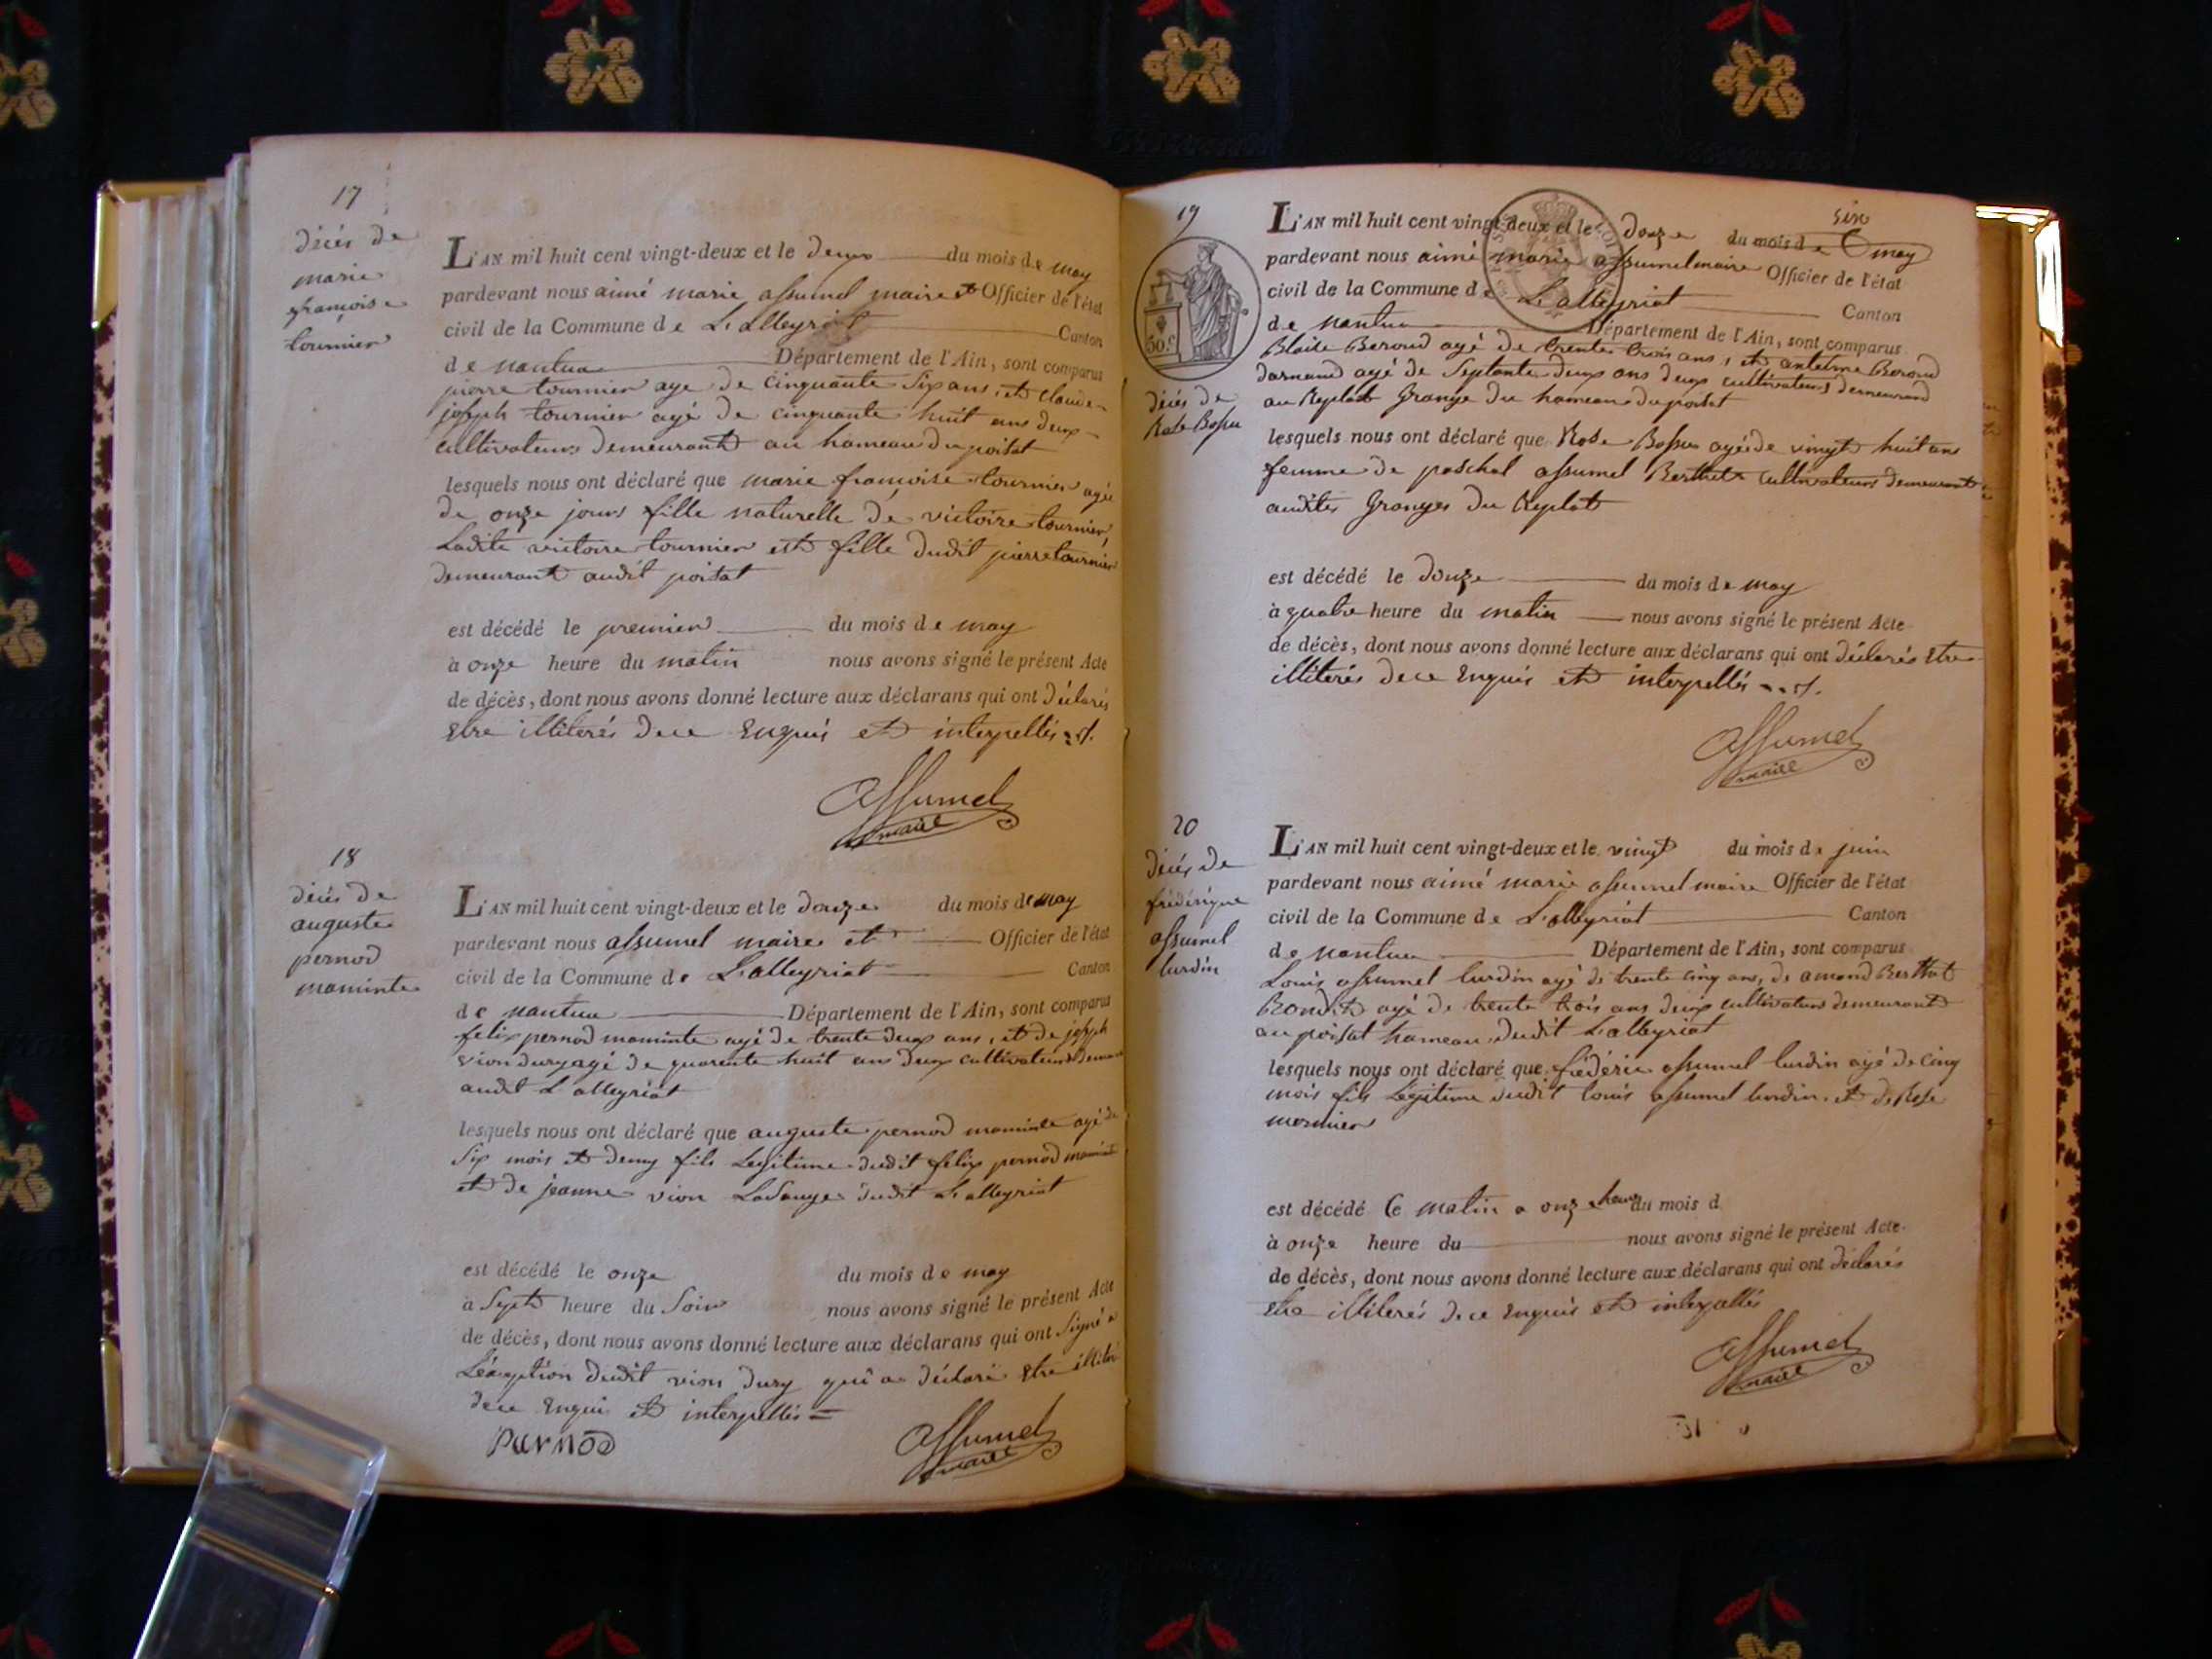 17
décés de
marie
françoise
tournier
L'AN mil huit cent vingt-deux et le deux du mois de may
pardevant nous aimé marie assumel maire et Officier de l'état
civil de la Commune de L'alleyriat Canton
de nantua Département de l'Ain, sont comparus
pierre tournier agé de cinquante six ans, et claude
joseph tournier agé de cinquante huit ans deux
cultivateurs demeurant au hameau du poisat
lesquels nous ont déclaré que marie françoise tournier agée
de onze jours fille naturelle de victoire tournier,
Ladite victoire tournier est fille dudit pierre tournier
demeurant audit poisat
est décédé le premier du mois de may
à onze heure du matin nous avons signé le présent Acte
de décès, dont nous avons donné lecture aux déclarans qui ont déclarés
Etre illiterés de ce Enquis et interpellés
Assumel
maire
18
décés de
auguste
pernod
maminte
L'AN mil huit cent vingt-deux et le douze du mois de may
pardevant nous assumel maire et Officier de l'état
civil de la Commune de L'alleyriat Canton
de nantua Département de l'Ain, sont comparus
felix pernod maminte agé de trente deux ans, et de joseph
vion dury agé de quarente huit ans deux cultivateurs
audit L'alleyriat
lesquels nous ont déclaré que auguste pernod maminte agé de
Six mois et demy fils Legitime dudit felix pernod maminte
et de jeanne vion dudit L'alleyriat
est décédé le onze du mois de may
à Sept heure du Soir nous avons signé le présent Acte
de décès, dont nous avons donné lecture aux déclarans qui ont Signé a
L'éxeption dudit vion dury qui a déclaré Etre illiteré
de ce Enquis et interpellés
Pernod
Assumel
maire
19
50 c
décés de
Rose Bossu
six
L'AN mil huit cent vingt-deux et le douze du mois de may
pardevant nous aimé marie assumel maire Officier de l'état
civil de la Commune de L'alleyriat Canton
de nantua Département de l'Ain, sont comparus
Blaise Beroud agé de trente trois ans, et antelme Beroud
darnaud agé de Septante deux ans deux cultivateurs demeurand
au Replat Grange du hameau du poisat
lesquels nous ont déclaré que Rose Bossu agée de vingt huit ans
femme de paschal assumel Berthet cultivateurs demeurant
audites Granges du Replat
est décédé le douze du mois de may
à quatre heure du matin nous avons signé le présent Acte
de décès, dont nous avons donné lecture aux déclarans qui ont déclarés Etre
illiterés de ce Enquis et interpellés
Assumel
maire
20
décés de
frédérique
assumel
lurdin
L'AN mil huit cent vingt-deux et le vingt du mois de juin
pardevant nous aimé marie assumel maire Officier de l'état
civil de la Commune de L'alleyriat Canton
de nantua Département de l'Ain, sont comparus
Louis assumel lurdin agé de trente cinq ans, de amand Berthet
Bondet agé de trente trois ans deux cultivateurs demeurant
au poisat hameau dudit L'alleyriat
lesquels nous ont déclaré que frédéric assumel lurdin agé de cinq
mois fils Légitime dudit louis assumel lurdin et de Rose
mermier
est décédé Ce matin a onze heure du mois d
à onze heure du nous avons signé le présent Acte
de décès, dont nous avons donné lecture aux déclarans qui ont déclarés
Etre illiterés de ce Enquis et interpellés
Assumel
maire